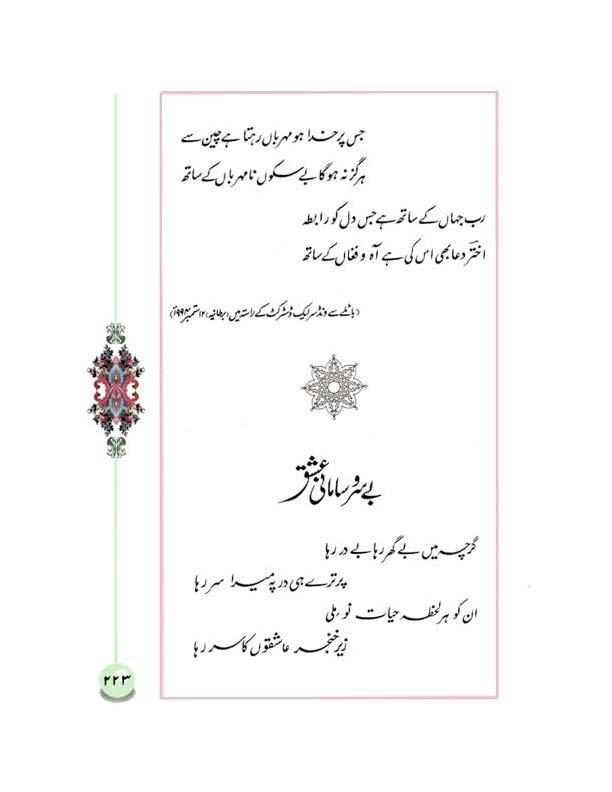 جس پر خدا ہو مہرباں رہتا ہے چین سے
ہرگز نہ ہوگا بے سکوں نامہرباں کے ساتھ
رب جہاں کے ساتھ ہے جس دل کو رابطہ
اخترؔ دعا بھی اس کی ہے آہ و فغاں کے ساتھ
(باٹلے سے ونڈسر لیک ڈسٹرکٹ کے راستہ میں (برطانیہ) ۱۲ ستمبر ۱۹۹۴ء)
بے سر و سامانیٔ عشق
گرچہ میں بے گھر رہا بے در رہا
پر ترے ہی در پہ میرا سر رہا
ان کو ہر لحظہ حیات نو ملی
زیر خنجر عاشقوں کا سر رہا
۲۲۳